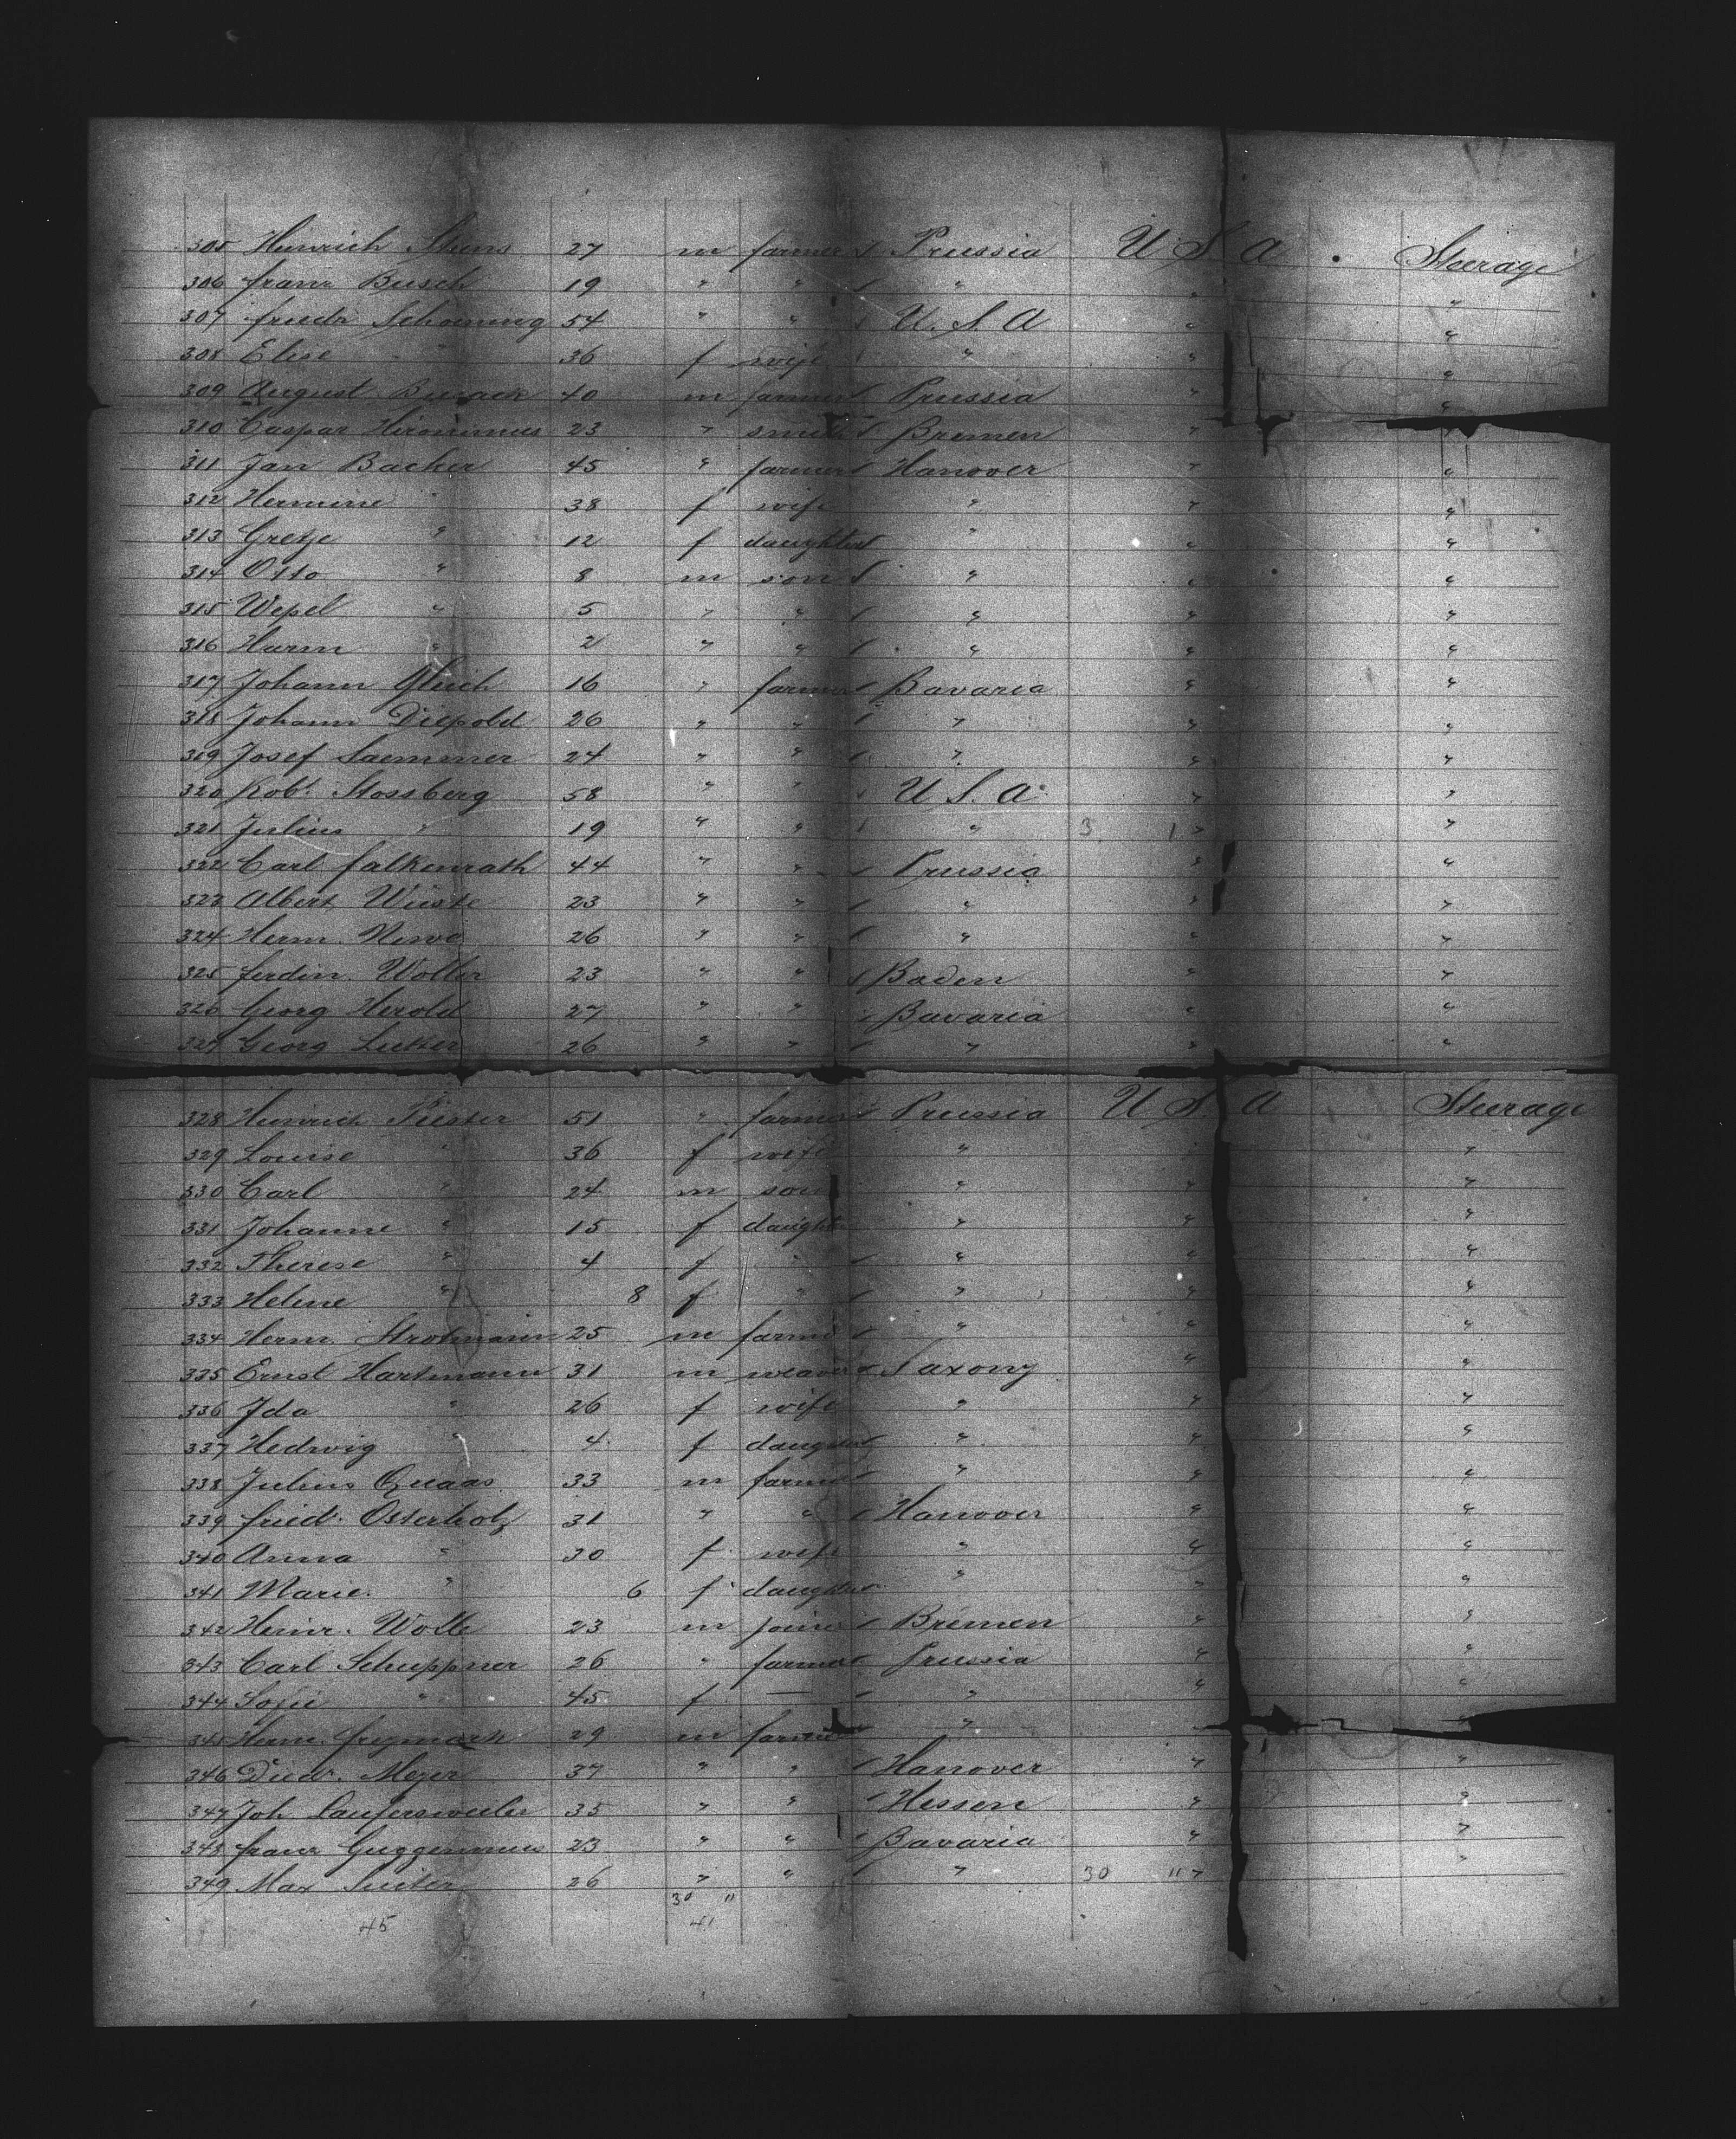 305 Heinrich Stens 27 m farmer Prussia U S A Steerage
306 Franz Busch 19 " " " " "
307 Friedr. Schoening 54 " " U. S. A " "
308 Elise " 36 f wife " " "
309 August 40 m farmer Prussia " "
310 Caspar Hironimus 23 " smith Bremen " "
311 Jan Backer 45 " farmer Hanover " "
312 Hermine " 38 f wife " " "
313 Gretje " 12 f daughter " " "
314 Otto " 8 m son " " "
315 Wessel " 5 " " " " "
316 Harm " 2 " " " " "
317 Johann Gleich 16 " farmer Bavaria " "
318 Johann Diepold 26 " " " " "
319 Josef Saemmer 24 " " " " "
320 Rob. Stossberg 58 " " U S. A. " "
321 Julius " 19 " " " 3 1 " "
322 Carl Falkenrath 44 " " Prussia " "
323 Albert Wüste 23 " " " " "
324 Herm. 26 " " " " "
325 Ferdin. Woller 23 " " Baden " "
326 Georg Herold 27 " " Bavaria " "
327 Georg 26 " " " " "
328 Heinrich 51 " farmer Prussia U S. A Steerage
329 Louise " 36 f wife " " "
330 Carl " 24 m son " " "
331 Johanne " 15 f daughter " " "
332 Therese " 4 f " " " "
333 Helene " 8 f " " " "
334 Herm. Strotmann 25 m farmer " " "
335 Ernst Hartmann 31 m weaver Saxony " "
336 Ida " 26 f wife " " "
337 Hedwig " 4 f daughter " " "
338 Julius Quaas 33 m farmer " " "
339 Friedr. Osterholz 31 " " Hanover " "
340 Anna " 30 f wife " " "
341 Marie " 6 f daughter " " "
342 Heinr. Wolle 23 m joiner Bremen " "
343 Carl Schuppner 26 " farmer Prussia " "
344 Sofie " 45 f — " " "
345 Herm. Frymark 29 m farmer " " "
346 Diedr. Meyer 37 " " Hanover " "
347 Joh Laufersweiler 35 " " Hessen " "
348 Franz Guggenmus 23 " " Bavaria " "
349 Max 26 " " " 30 11 " "
30 11
45 41